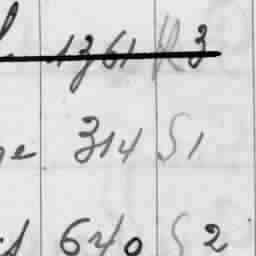 1361 R 3
314 S 1
640 S 2